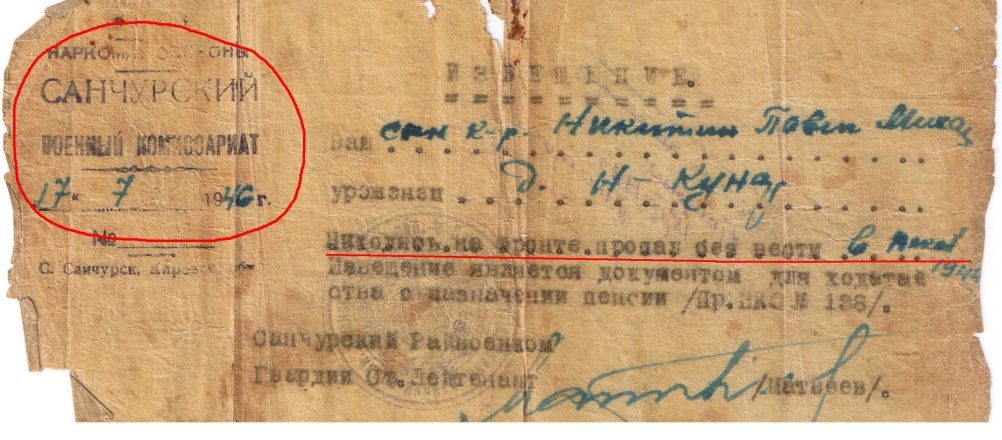 НАРКОМАТ ОБОРОНЫ
САНЧУРСКИЙ
ВОЕННЫЙ КОМИССАРИАТ
"17" 7 1946 г.
№
С. Санчурск, Кировск. обл.
ИЗВЕЩЕНИЕ.
Ваш сын к-р. Никитин Павел Михаи
уроженец д. Н-Кунар
Находясь на фронте пропал без вести в
194
Извещение является документом для ходатай
ства о назначении пенсии /Пр.НКО № 138/.
Санчурский Райвоенком
Гвардии Ст. Лейтенант /Матвеев/.